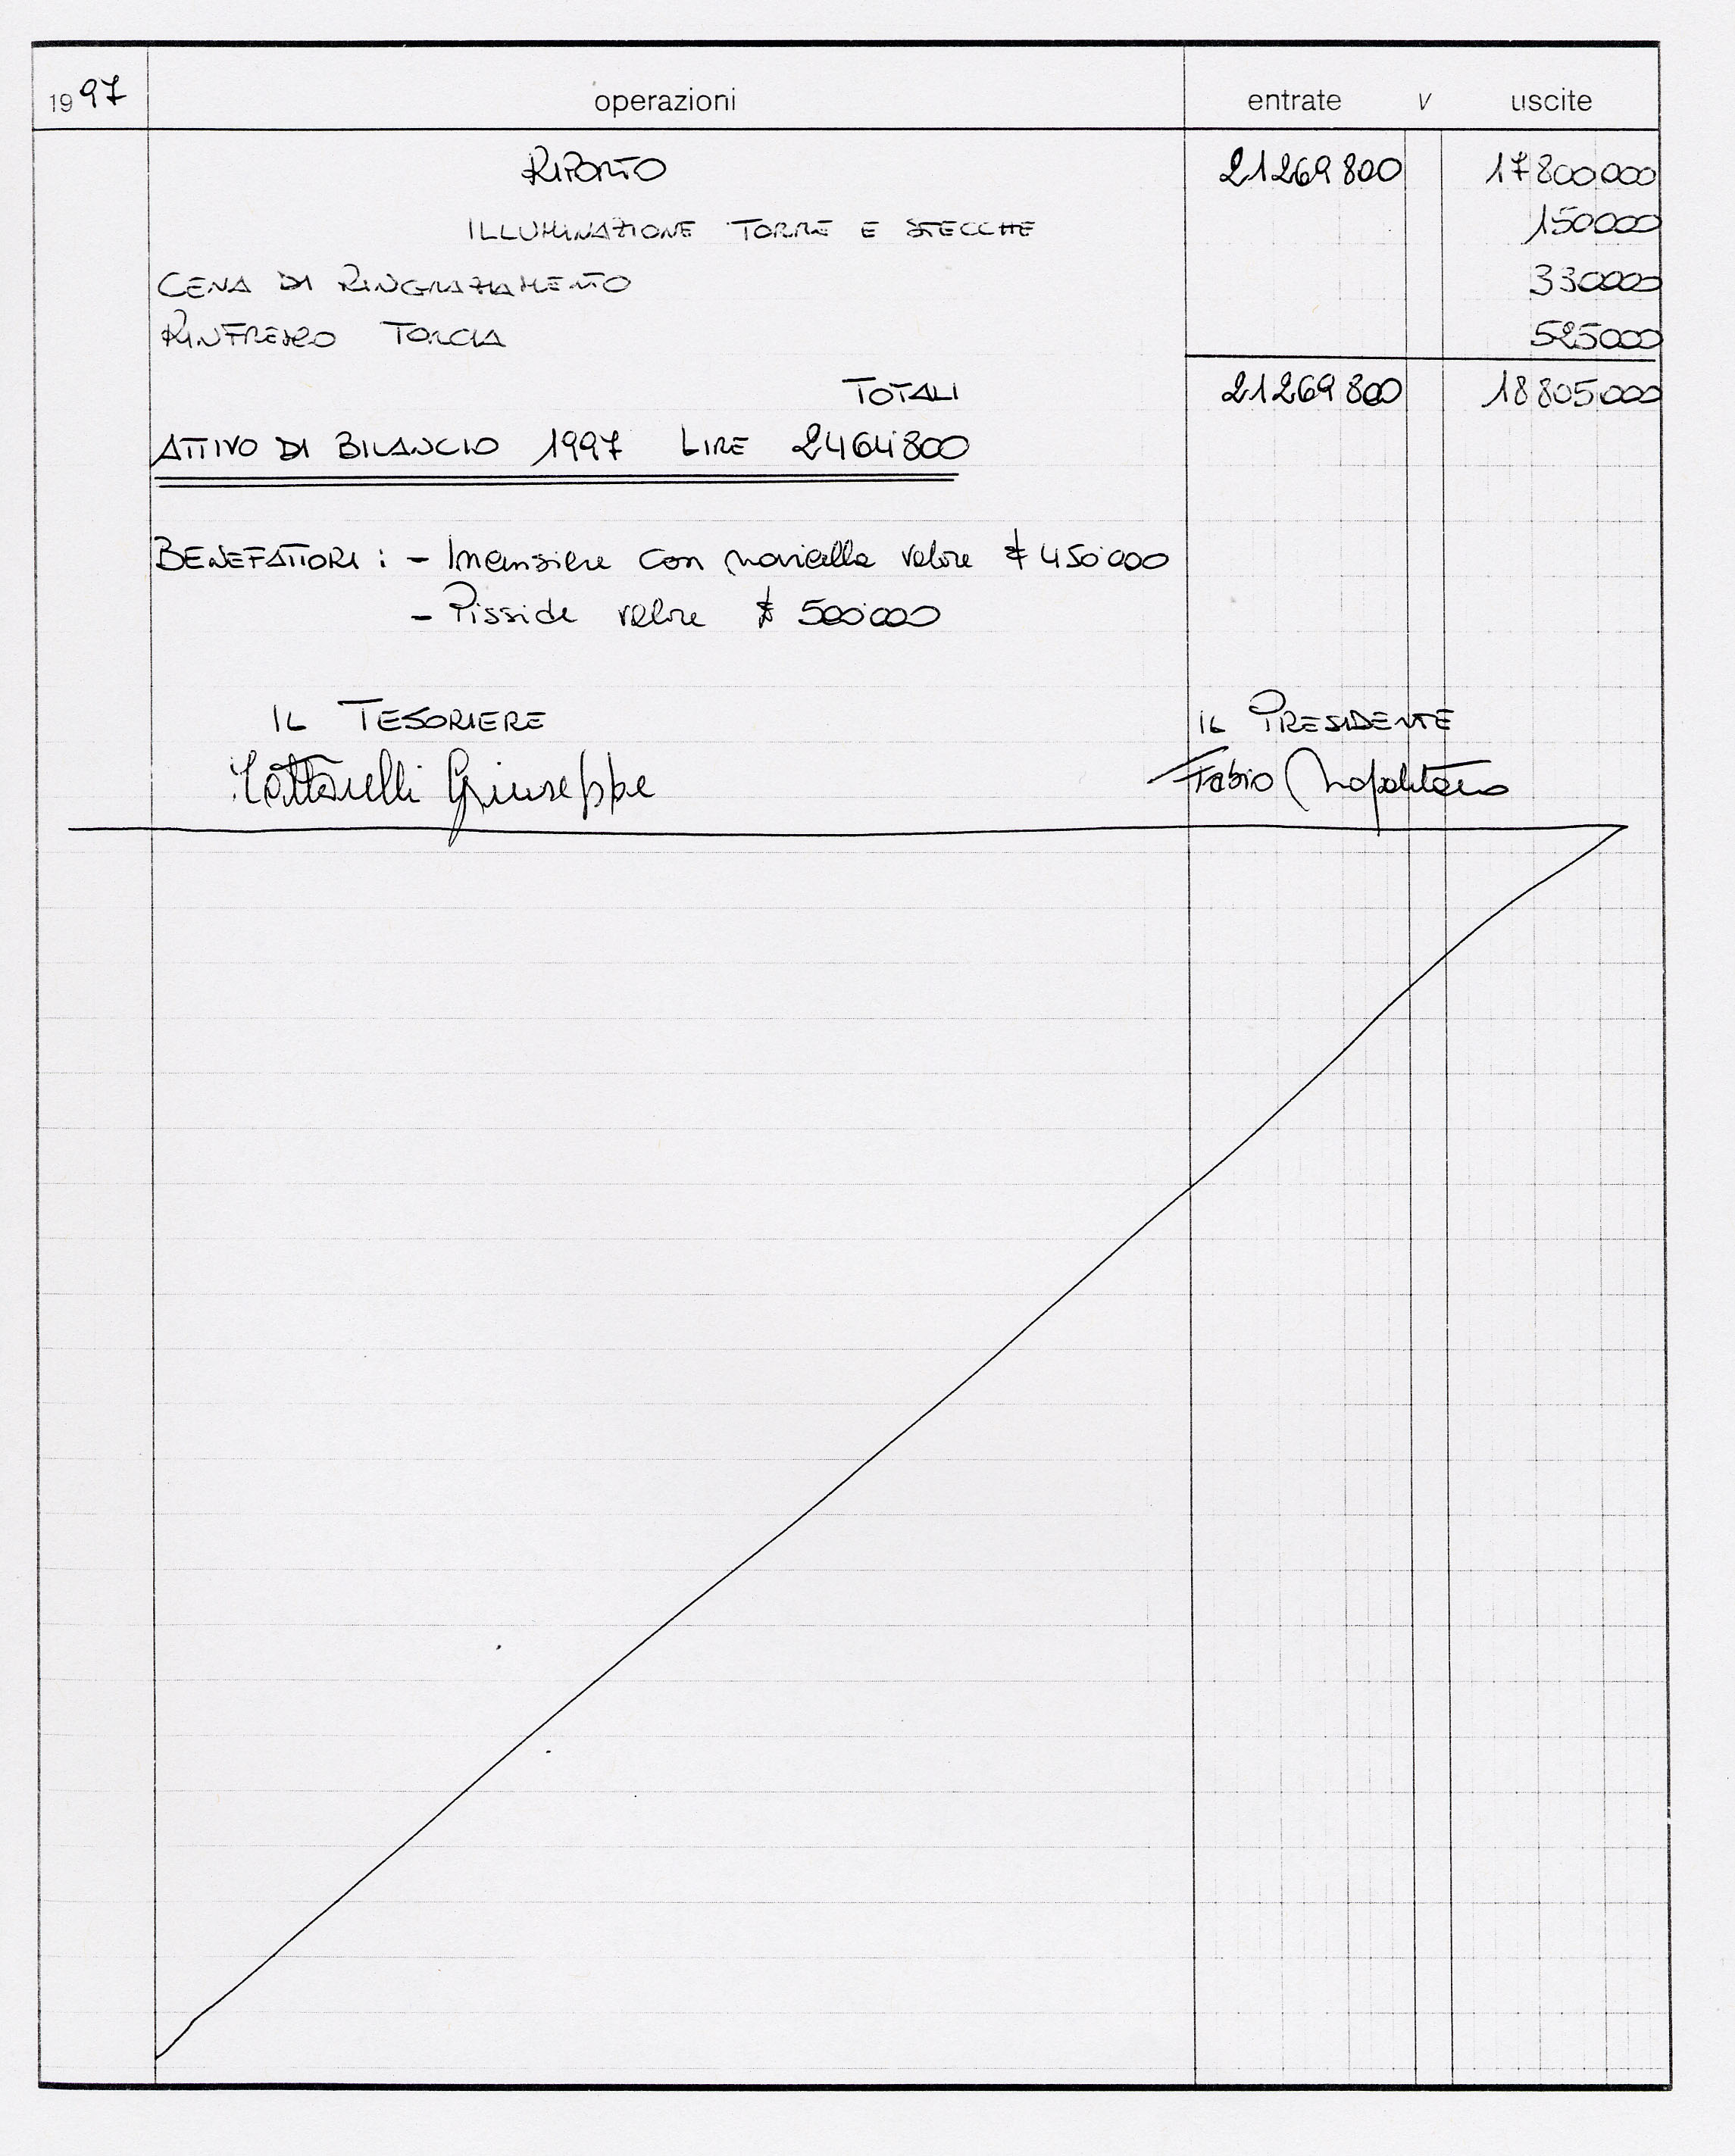 1997 operazioni entrate v uscite
RIPORTO 21269800 17800000
ILLUMINAZIONE TORRE E STECCHE 150000
CENA DI RINGRAZIAMENTO 330000
RINFRESCO TORCIA 525000
TOTALI 21269800 18805000
ATTIVO DI BILANCIO 1997 LIRE 2464800
BENEFATTORI : - Incensiere con navicella valore £ 450'000
- Pisside valore £ 500'000
IL TESORIERE IL PRESIDENTE
Giuseppe Fabio Napolitano